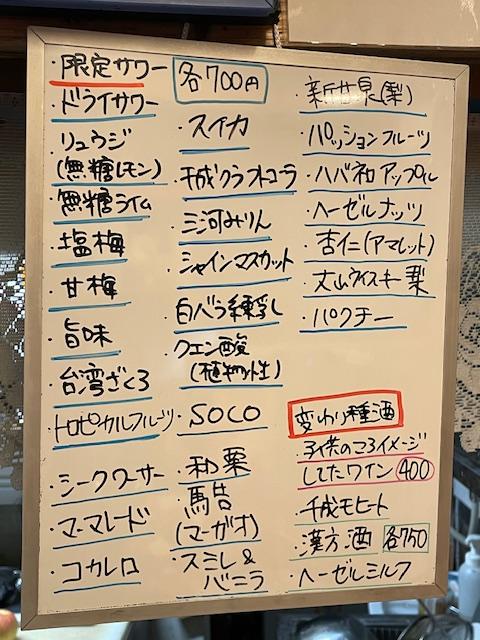 ・限定サワー
・ドライサワー
・リュウジ
(無糖レモン)
・無糖ライム
・塩梅
・甘梅
・旨味
・台湾ざくろ
・トロピカルフルーツ
・シークワーサー
・マーマレード
・コカレロ
各700円
・スイカ
・千成クラフトコーラ
・三河みりん
・シャインマスカット
・白バラ練乳
・クエン酸
(植物性)
・SOCO
・和栗
・馬告
(マーガオ)
・スミレ&
バニラ
・新甘泉(梨)
・パッションフルーツ
・ハバネロアップル
・ヘーゼルナッツ
・杏仁(アマレット)
・大山ウイスキー梨
・パクチー
変わり種酒
・子供のころイメージ
してたワイン 400
・千成モヒート
・漢方酒 各750
・ヘーゼルミルク